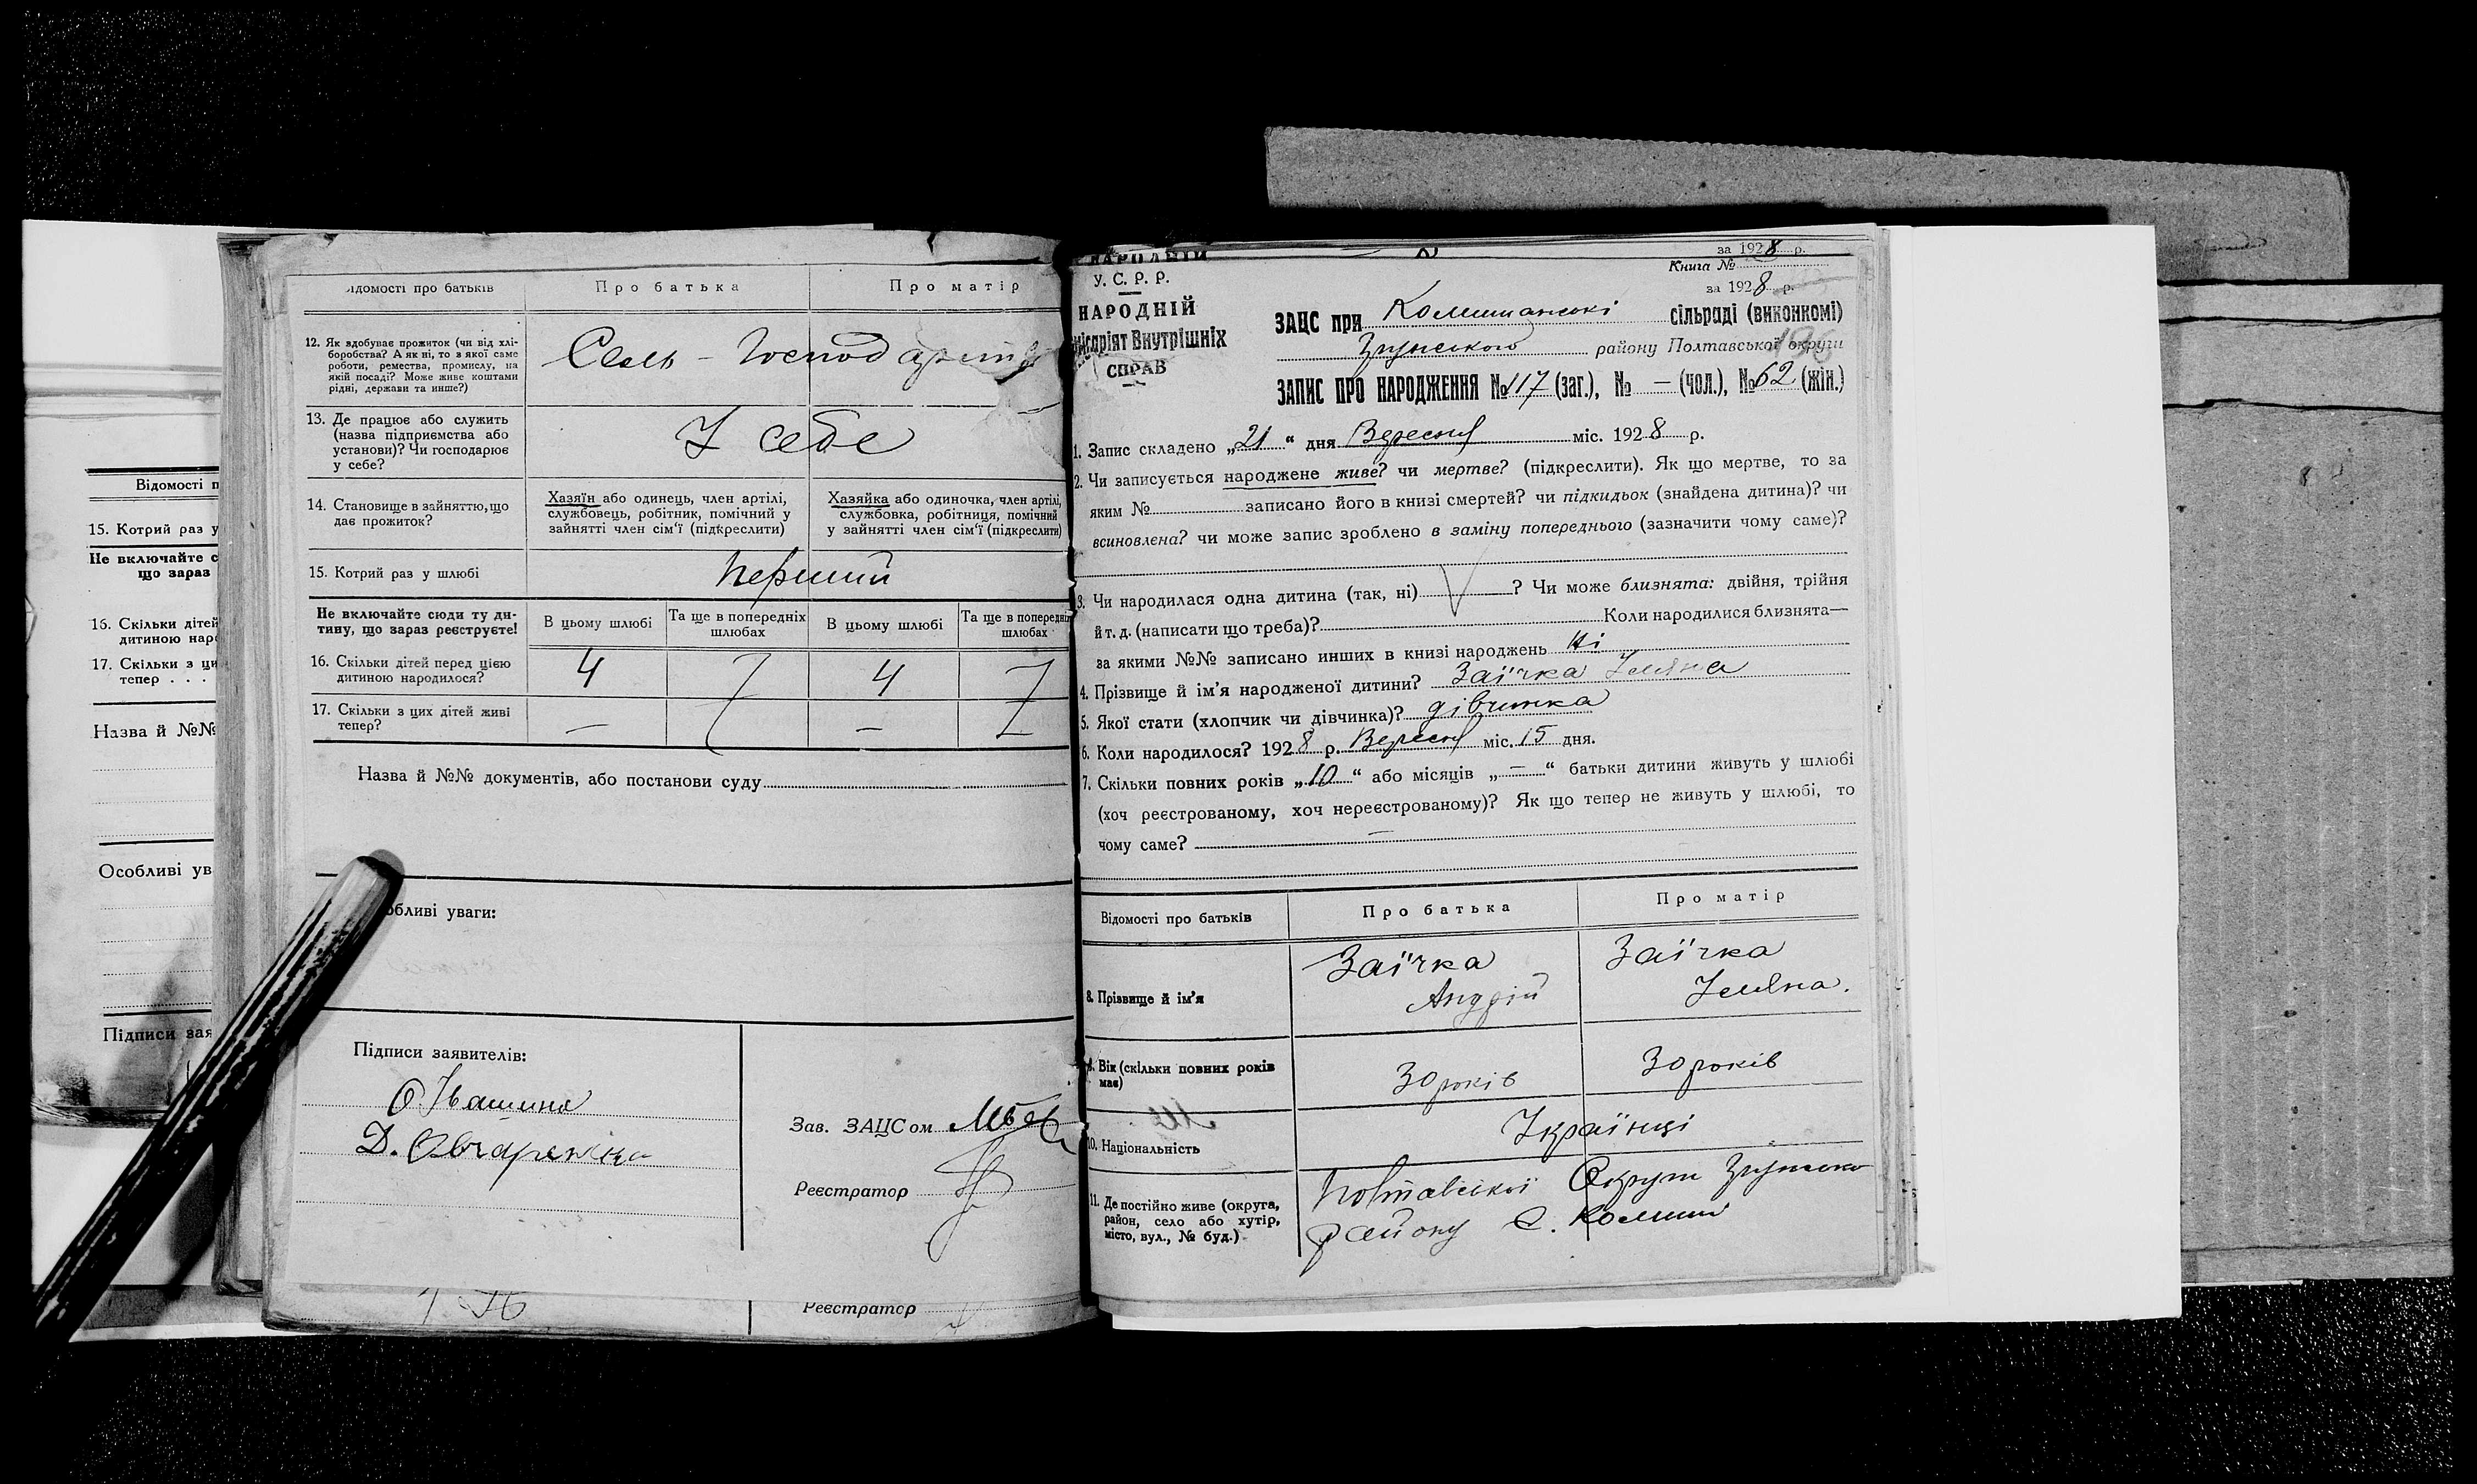 Відомості п
15. Котрий раз у
Не включайте с
що зараз
16. Скільки дітей
дитиною наро
17. Скільки з ци
тепер . . .
Назва й №№
Особливі ув
Підписи зая
ідомості про батьків
Про батька
Про матір
12. Як здобуває прожиток (чи від хлі-
боробства? А як ні, то з якої саме
роботи, ремества, промислу, на
якій посаді? Може живе коштами
рідні, держави та инше?)
Сель-Господ
13. Де працює або служить
(назва підприємства або
установи)? Чи господарює
у себе?
У себе
14. Становище в зайняттю, що
дає прожиток?
Хазяїн або одинець, член артілі,
службовець, робітник, помічний у
зайнятті член сім'ї (підкреслити)
Хазяйка або одиночка, член артілі,
службовка, робітниця, помічний
у зайнятті член сім'ї (підкреслити)
15. Котрий раз у шлюбі
перший
Не включайте сюди ту ди-
тину, що зараз реєструєте!
В цьому шлюбі
Та ще в попередніх
шлюбах
В цьому шлюбі
Та ще в попередніх
шлюбах
16. Скільки дітей перед цією
дитиною народилося?
4
4
17. Скільки з цих дітей живі
тепер?
—
—
Назва й №№ документів, або постанови суду
обливі уваги:
Підписи заявителів:
О Івашина
Д. Овчаренко
Зав. ЗАЦСом
Реєстратор
Реєстратор
НАРОДНІЙ
за 1928 р.
У. С. Р. Р.
Книга №
за 1928 р.
НАРОДНІЙ
місаріят Внутрішніх
СПРАВ
ЗАЦС при Комишанські сільраді (виконкомі)
Зіньського району Полтавської округи
196
ЗАПИС ПРО НАРОДЖЕННЯ № 117 (заг.), № — (чол.), № 62 (жін.)
1. Запис складено „21" дня Вересня міс. 1928 р.
2. Чи записується народжене живе? чи мертве? (підкреслити). Як що мертве, то за
яким № записано його в книзі смертей? чи підкидьок (знайдена дитина)? чи
всиновлена? чи може запис зроблено в заміну попереднього (зазначити чому саме)?
3. Чи народилася одна дитина (так, ні) ? Чи може близнята: двійня, трійня
й т. д. (написати що треба)? Коли народилися близнята—
за якими №№ записано инших в книзі народжень Ні
4. Прізвище й ім'я народженої дитини? Заїчка Уляна
5. Якої стати (хлопчик чи дівчинка)? дівчинка
6. Коли народилося? 1928 р. Вересня міс. 15 дня.
7. Скільки повних років „10" або місяців „—" батьки дитини живуть у шлюбі
(хоч реєстрованому, хоч нереєстрованому)? Як що тепер не живуть у шлюбі, то
чому саме? —
Відомості про батьків
Про батька
Про матір
8. Прізвище й ім'я
Заїчка
Андрій
Заїчка
Уляна.
9. Вік (скільки повних років
має)
30 років
30 років
10. Національність
Українці
11. Де постійно живе (округа,
район, село або хутір,
місто, вул., № буд.)
Полтавської Округи
району с. Комиші